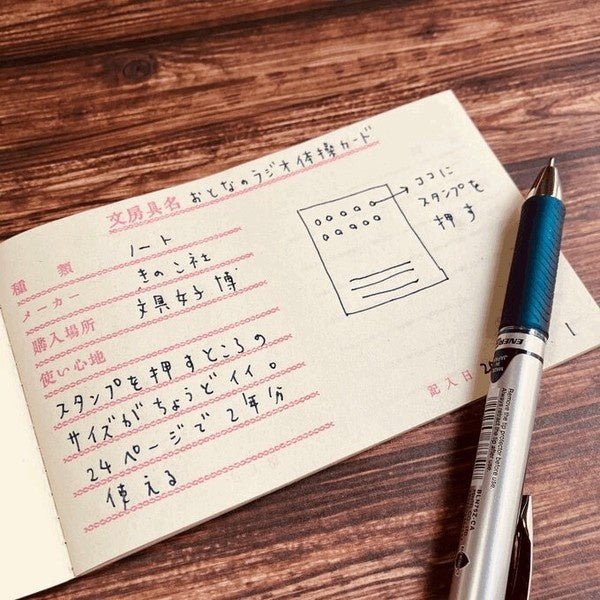 文房具名 おとなのラジオ体操カード
種類 ノート
メーカー きのこ社
購入場所 文具女子博
使い心地
スタンプを押すところの
サイズがちょうどイイ。
24ページで2年分
使える
ココに
スタンプを
押す
記入日 2
1
MADE IN JAPAN
Remove the tip protector before use.
BLN75Z-CA